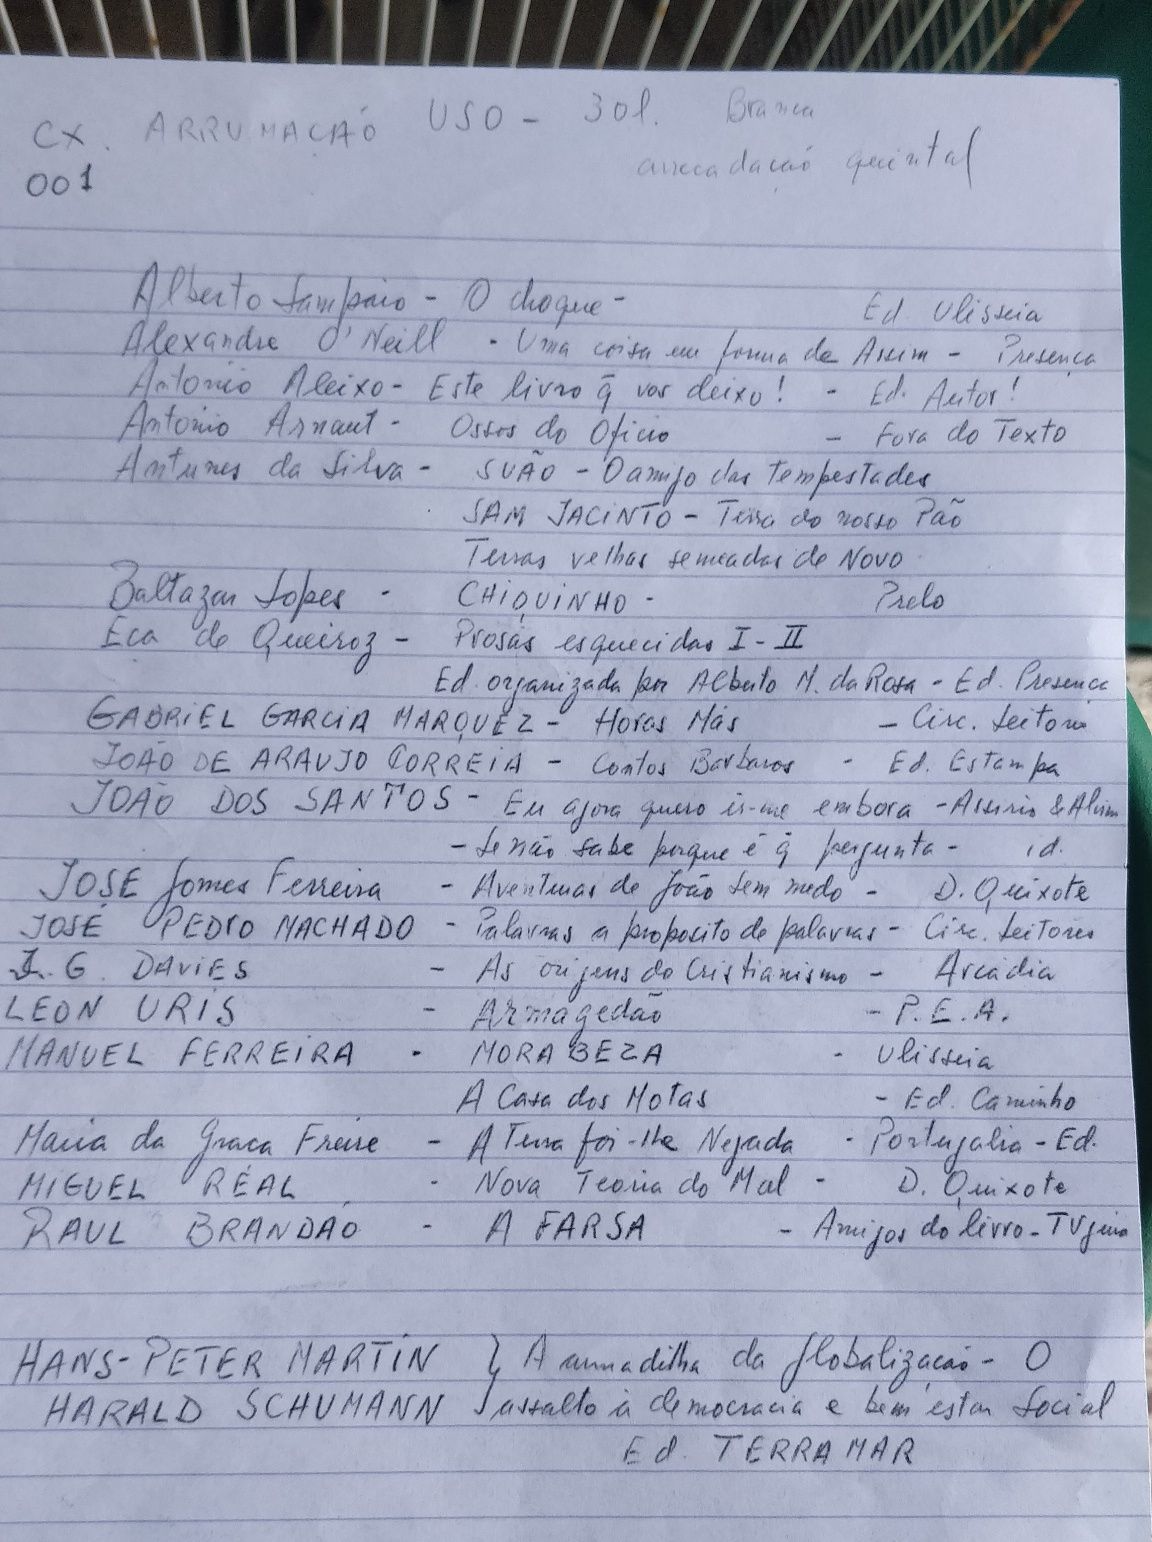 CX. ARRUMAÇÃO USO - 30l. Branca
001 arrecadação quintal
Alberto Sampaio - O choque - Ed. Ulisseia
Alexandre O'Neill - Uma coisa em forma de Assim - Presença
Antonio Aleixo - Este livro q̃ vos deixo! - Ed. Autor!
António Arnaut - Ossos do Ofício - Fora do Texto
Antunes da Silva - SUÃO - O amigo das Tempestades
SAM JACINTO - Terra do nosso Pão
Terras velhas semeadas de Novo
Baltazar Lopes - CHIQUINHO - Prelo
Eca de Queiroz - Prosas esquecidas I - II
Ed. organizada por Alberto M. da Rosa - Ed. Presença
GABRIEL GARCIA MARQUEZ - Horas Más - Circ. Leitores
JOÃO DE ARAUJO CORREIA - Contos Bárbaros - Ed. Estampa
JOÃO DOS SANTOS - Eu agora quero ir-me embora - Assirio & Alvim
- Se não sabe porque é q̃ pergunta - id.
JOSÉ Gomes Ferreira - Aventuras de João Sem medo - D. Quixote
JOSÉ PEDRO MACHADO - Palavras a proposito de palavras - Circ. Leitores
G. DAVIES - As origens do Cristianismo - Arcádia
LEON URIS - Armagedão - P.E.A.
MANUEL FERREIRA - MORABEZA - Ulisseia
A Casa dos Motas - Ed. Caminho
Maria da Graca Freire - A Terra foi-lhe Negada - Portugalia - Ed.
MIGUEL REAL - Nova Teoria do Mal - D. Quixote
RAUL BRANDÃO - A FARSA - Amigos do livro -
HANS-PETER MARTIN } A armadilha da globalização - O
HARALD SCHUMANN assalto à democracia e bem estar Social
Ed. TERRAMAR